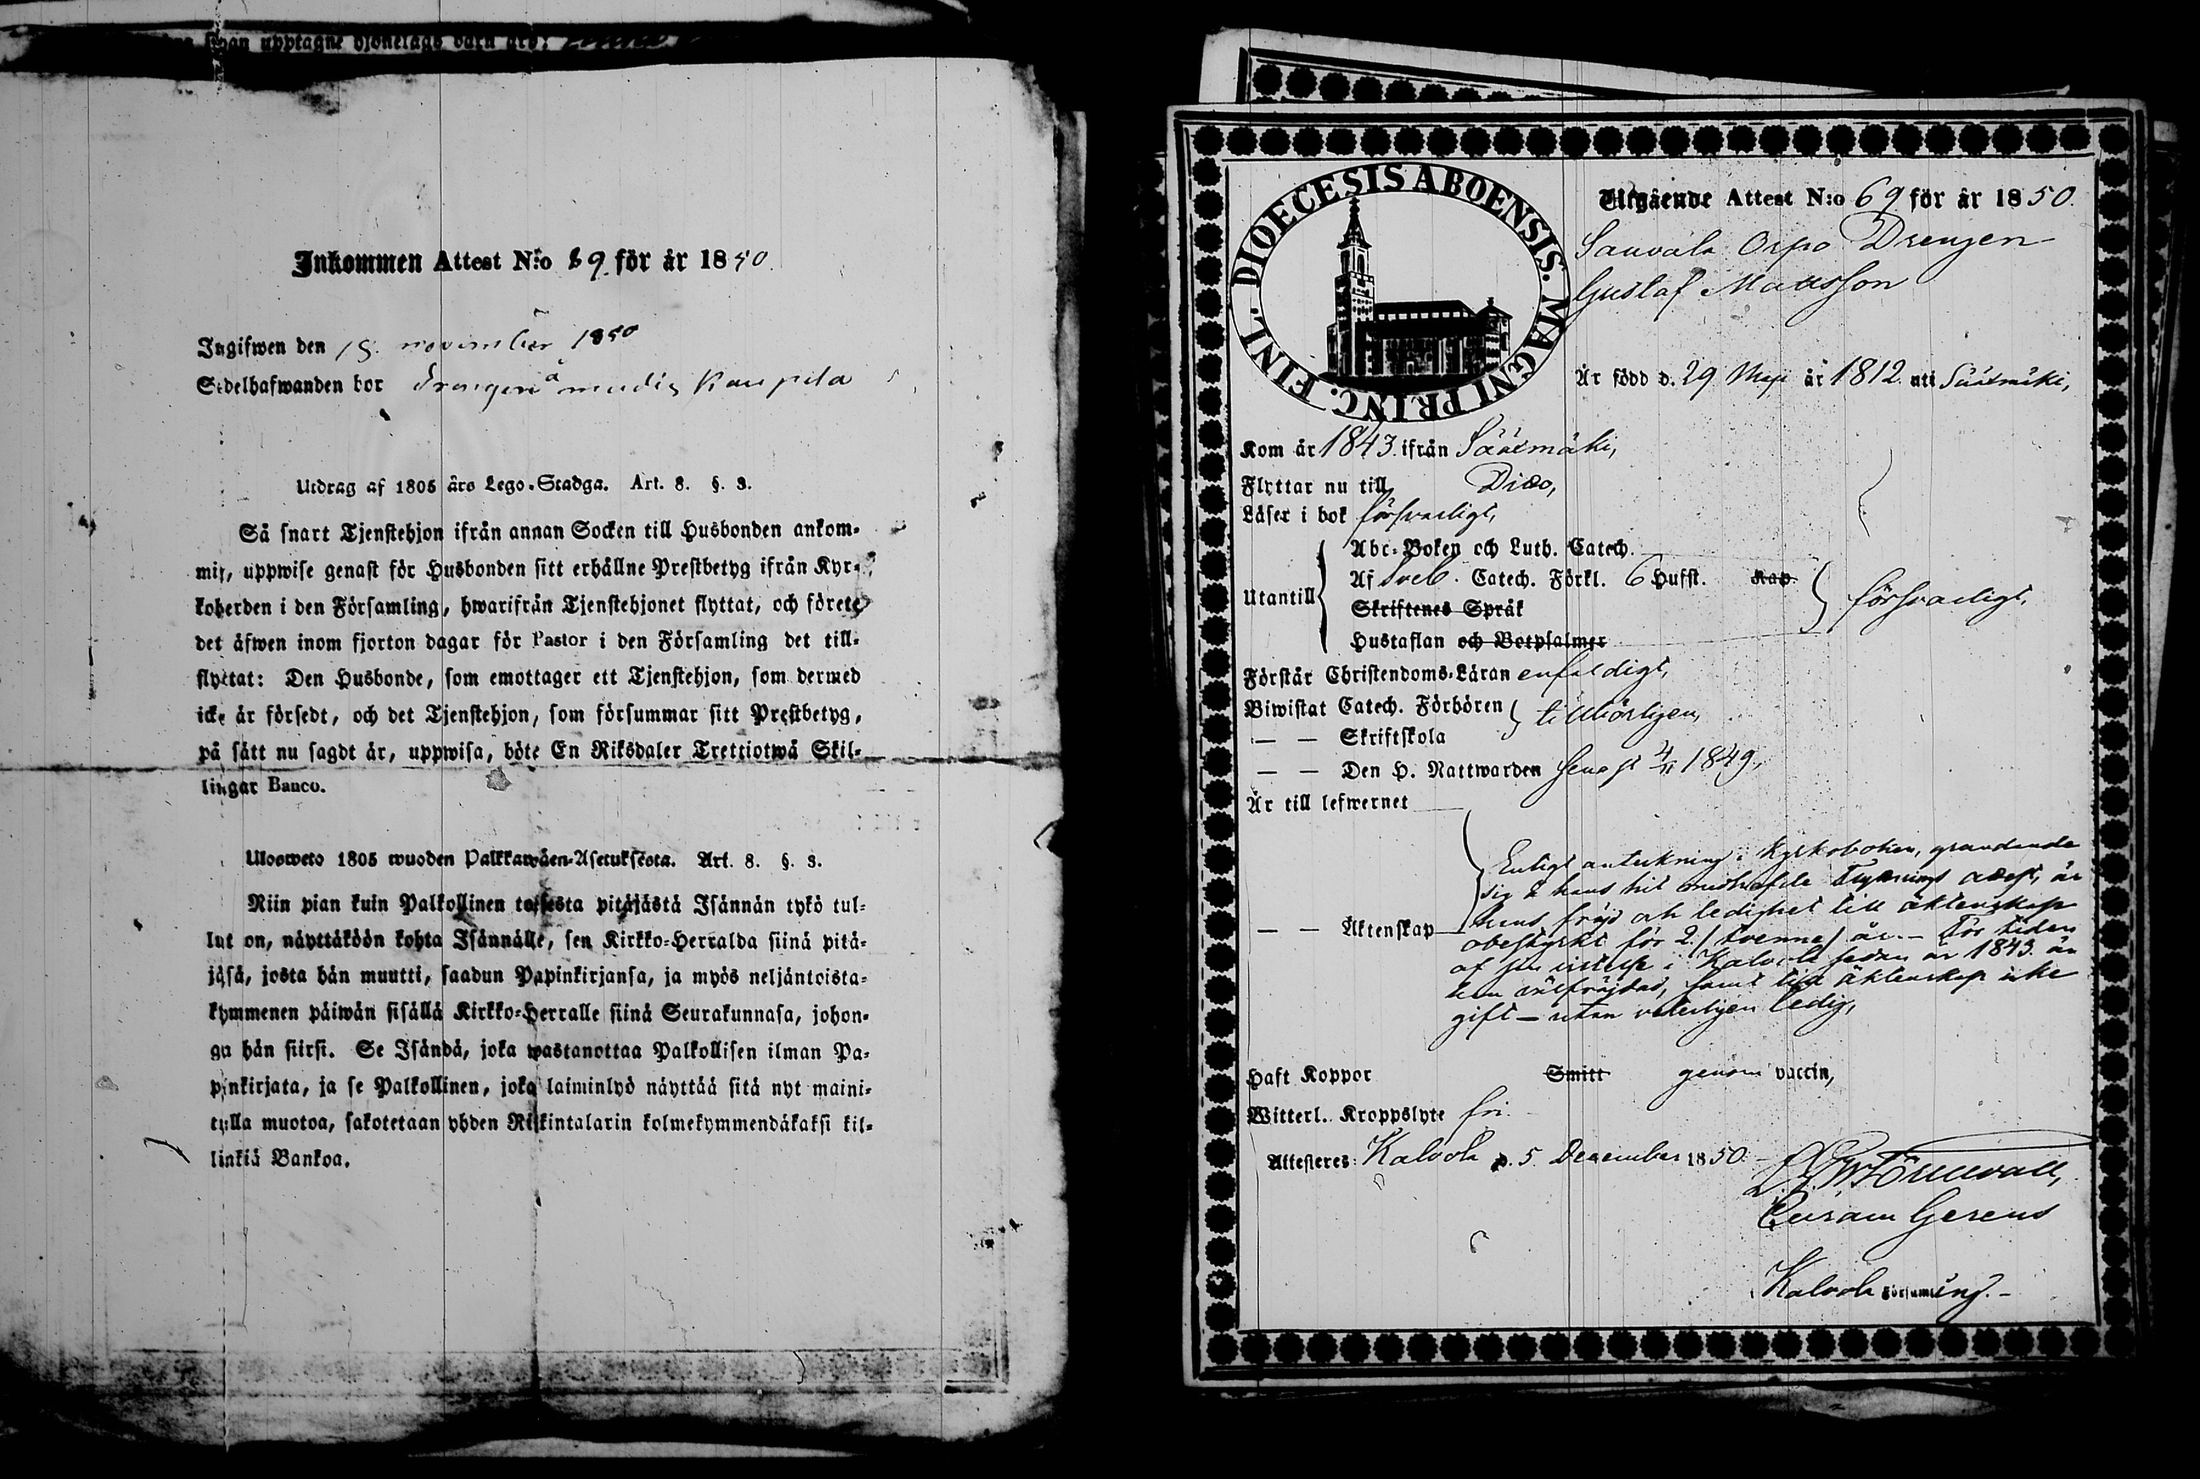 Inkommen Attest N:o 89 för år 1850.
Ingifwen den 15. november 1850
Sedelhafwanden bor
Utdrag af 1805 års Lego-Stadga. Art. 8. §. 3.
Så snart Tjenstehjon ifrån annan Socken till Husbonden ankom-
mit, uppwise genast för Husbonden sitt erhållne Prestbetyg ifrån Kyr-
koherden i den Församling, hwarifrån Tjenstehjonet flyttat, och förete
det äfwen inom fjorton dagar för Pastor i den Församling det till-
flyttat: Den Husbonde, som emottager ett Tjenstehjon, som dermed
icke är försedt, och det Tjenstehjon, som försummar sitt Prestbetyg,
på sätt nu sagdt är, uppwisa, böte En Riksdaler Trettiotwå Skil-
lingar Banco.
Ulosweto 1805 wuoden Palkkawäen-Asetuksesta. Art. 8. §. 3.
Niin pian kuin Palkollinen toisesta pitäjästä Isännän tykö tul-
lut on, näyttäköön kohta Isännälle, sen Kirkko-Herralda siinä pitä-
jäsä, josta hän muutti, saadun Papinkirjansa, ja myös neljäntoista-
kymmenen päiwän sisällä Kirkko-Herralle siinä Seurakunnasa, johon-
ga hän siirsi. Se Isändä, joka wastanottaa Palkollisen ilman Pa-
pinkirjata, ja se Palkollinen, joka laiminlyö näyttää sitä nyt maini-
tulla muotoa, sakotetaan yhden Riikintalarin kolmekymmendäkaksi kil-
linkiä Bankoa.
DIOECESIS ABOENSIS. MAGNI PRINC. FINL.
Utgående Attest N:o 69 för år 1850.
Sauvala Orpo Drengen
Gustaf Mattsson
Är född d. 29 Maji år 1812 uti Sääxmäki,
Kom år 1843. ifrån Sääxmäki,
Flyttar nu till Dito,
Läser i bok försvarligt,
Abc-Boken och Luth. Catech.
Af Sveb. Catech. Förkl. 6 Hufst. Kap.
Utantill försvarligt,
Skriftenes Språk
Hustaflan och Botpsalmer
Förstår Christendoms-Läran enfaldigt,
Biwistat Catech. Förhören tillbörligen,
— — Skriftskola
— — Den H. Nattwarden senast 4/11 1849,
Är till lefwernet
Enligt anteckning i Kyrkoboken, grundande
sig å hans hit medhafde flyttnings attest, är
— — Äktenskap hans frejd och ledighet till äktenskap
obestyrkt för 2./tvenne/ år.— För tiden
af sin vistelse i Kalvola sedan år 1843 är
han välfräjdad, samt till äktenskap icke
gift — utan veterligen ledig,
Haft Koppor Smitt genom vaccin,
Witterl. Kroppslyte fri.
Attesteres: Kalvola d. 5. December 1850.
Curam Gerens
Kalvola Församling.